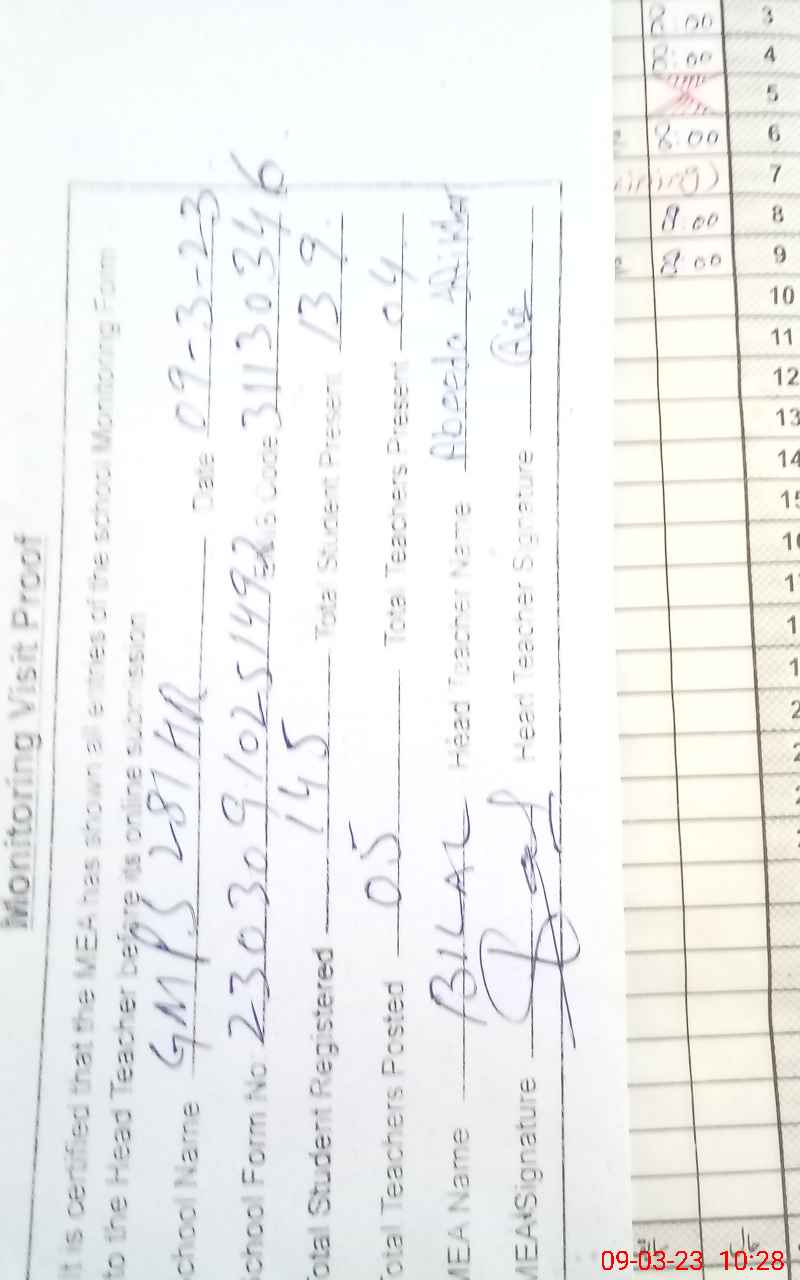 Monitoring Visit Proof
It is certified that the MEA has shown all entries of the school Monitoring Form
to the Head Teacher before its online submission
chool Name GMPS 281 HR Date 09-3-23
chool Form No: 23030910251492 Code 31130346
otal Student Registered 145 Total Student Present 139
otal Teachers Posted 05 Total Teachers Present 04
MEA Name BILAL Head Teacher Name Abeeda
MEA Signature Head Teacher Signature
8:00 3
8:00 4
5
8:00 6
ining) 7
8:00 8
8:00 9
10
11
12
13
14
09-03-23 10:28